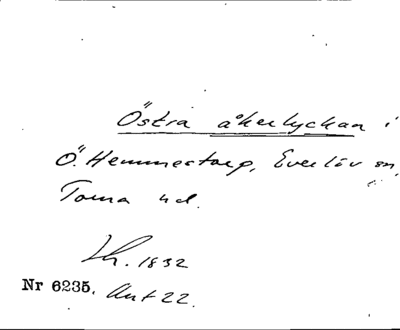 Östra åkerlyckan i
Ö. Hemmestorp, Everlöv sn,
Torna hd.
Lh. 1832
Nr 6235. Ant 22.